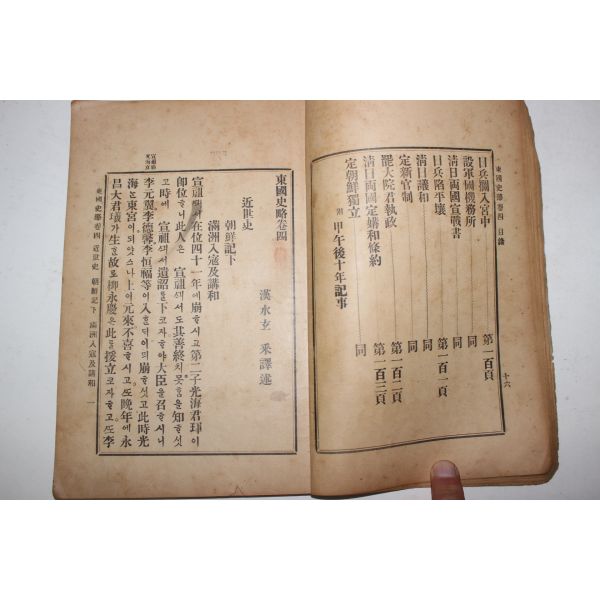 東國史略卷四 目錄
十六
日兵攔入宮中 第一百頁
設軍國機務所 同
淸日両國宣戰書 同
日兵陷平壤 第一百一頁
淸日議和 同
定新官制 同
罷大院君執政 第一百二頁
淸日両國定媾和條約 第一百三頁
定朝鮮獨立 同
附 甲午後十年記事
東國史略卷四
漢水玄 采譯述
近世史
朝鮮記下
滿洲入寇及講和
宣祖 在位四十一年에崩 시고第二子光海君琿이
卽位 니此人은 宣祖 서도其善終치못 을知 섯
時에 宣祖 서遺詔를下코자 야大臣을召 시니
李元翼李德馨李恒福等이入 되이의崩 섯고此時光
海 東宮이되얏스나上이元來不喜 시고 晩年에永
昌大君㼁가生 故로柳永慶은此를援立코자 고 李
東國史略卷四 近世史 朝鮮記下 滿洲入寇及講和 一